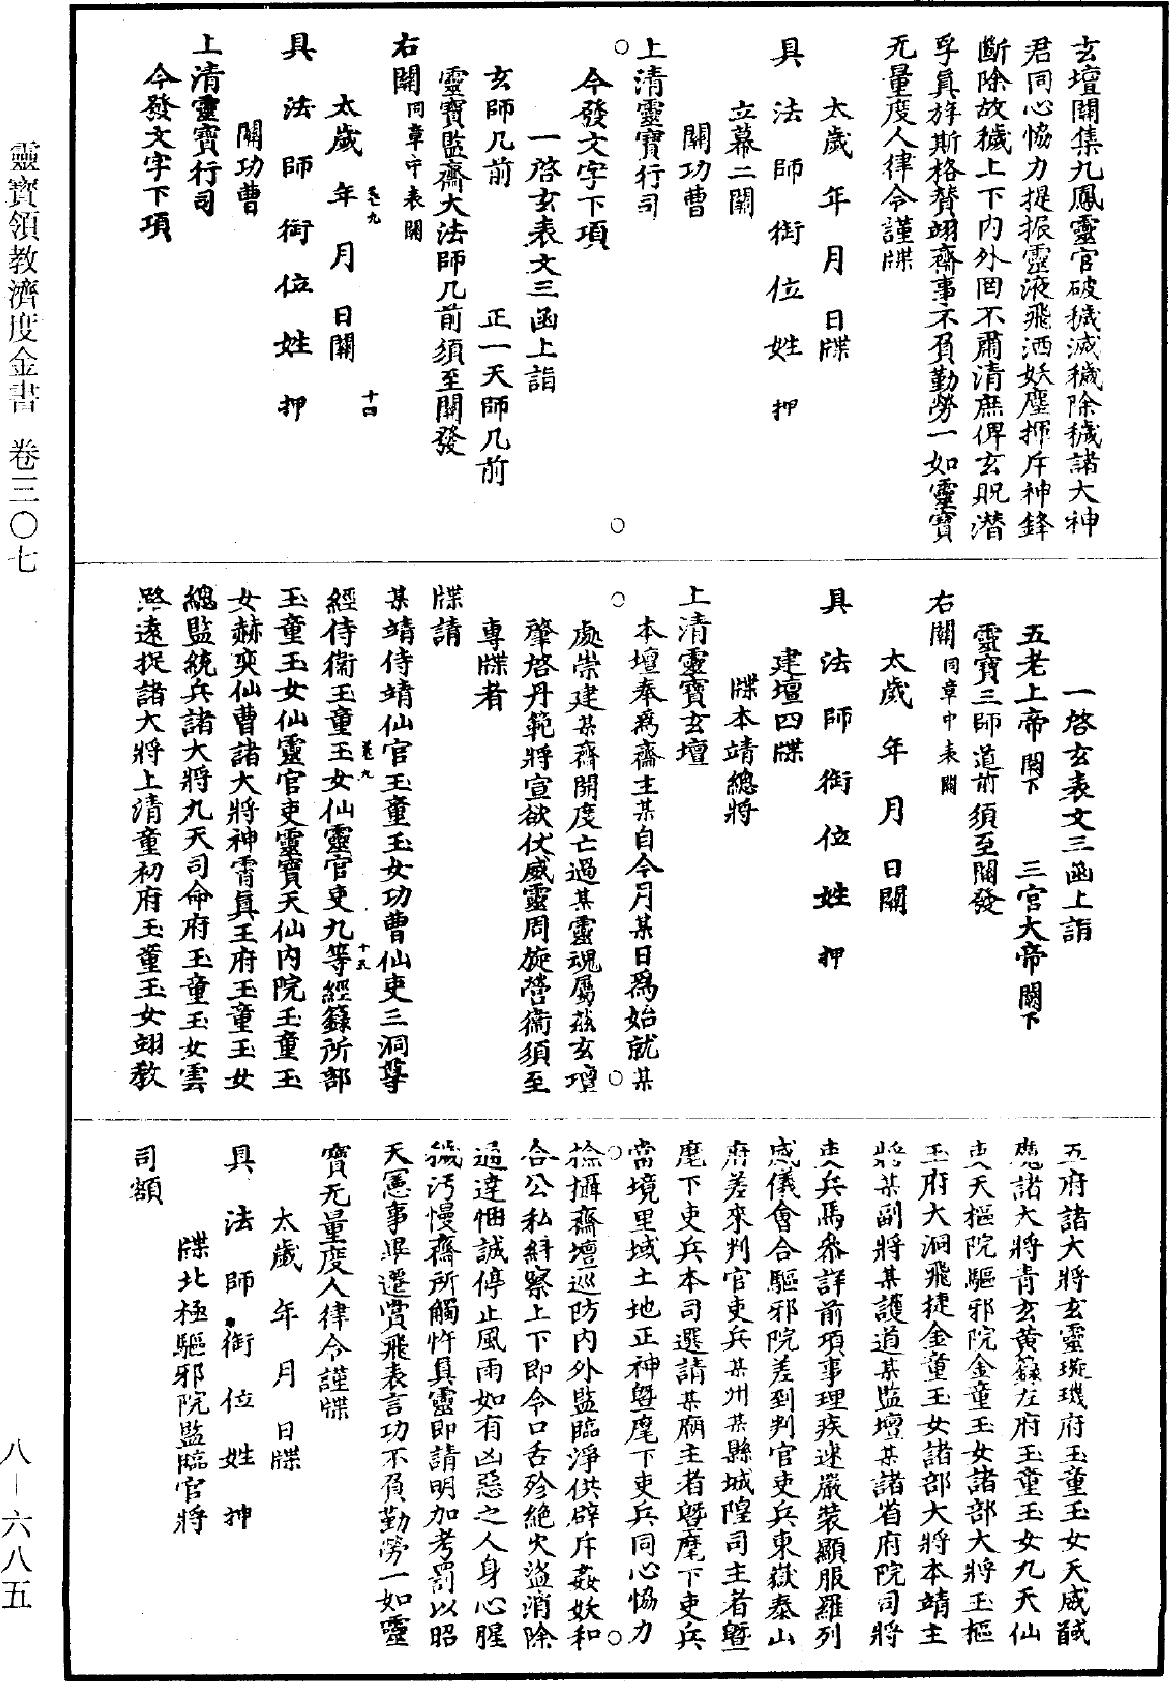 玄壇關集九鳳靈官破穢滅穢除穢諸大神
君同心恊力提振靈液飛洒妖塵揮斥神鋒
斷除故穢上下內外罔不肅清庶俾玄貺潛
孚真斿斯格賛翊齋事不負勤勞一如靈寶
无量度人律令謹牒
太歲 年 月 日牒
具 法 師 銜 位 姓 押
立幕二關
關功曹
上清靈寶行司
今發文字下項
一啓玄表文三函上詣
玄師几前 正一天師几前
靈寶監齋大法師几前須至關發
右關同章中表關
太歲 年 月 日關
卷九 十四
具 法 師 銜 位 姓 押
關功曹
上清靈寶行司
今發文字下項
一啓玄表文三函上詣
五老上帝闕下 三官大帝闕下
靈寶三師道前須至關發
右關同章中表關
太歲 年 月 日關
具 法 師 銜 位 姓 押
建壇四牒
牒本靖總將
上清靈寶玄壇
本壇奉爲齋主某自今月某日爲始就某
處崇建某齋開度亡過某靈魂屬玆玄壇
肇啓丹範將宣欲仗威靈周旋營衞須至
專牒者
牒請
某靖侍靖仙官玉童玉女功曹仙吏三洞尊
經侍衞玉童玉女仙靈官吏九等經籙所部
卷九 十五
玉童玉女仙靈官吏靈寶天仙內院玉童玉
女赫奕仙曹諸大將神霄真王府玉童玉女
總監統兵諸大將九天司命府玉童玉女雲
路遠捉諸大將上清童初府玉童玉女翊教
五府諸大將玄靈璇璣府玉童玉女天威馘
魔諸大將青玄黃籙左府玉童玉女九天仙
吏天樞院驅邪院金童玉女諸部大將玉樞
玉府大洞飛捷金童玉女諸部大將本靖主
將某副將某護道某監壇某諸省府院司將
吏兵馬叅詳前項事理疾速嚴裝顯服羅列
威儀會合驅邪院差到判官吏兵東嶽泰山
府差來判官吏兵某州某縣城隍司主者曁
麾下吏兵本司選請某廟主者曁麾下吏兵
當境里域土地正神曁麾下吏兵同心恊力
掩攝齋壇巡防內外監臨淨供辟斥姦妖和
合公私紏察上下即令口舌殄絕火盜消除
通達悃誠停止風雨如有凶惡之人身心腥
穢汚慢齋所觸忤真靈即請明加考罰以昭
天憲事畢遷賞飛表言功不負勤勞一如靈
寶无量度人律令謹牒
太歲 年 月 日牒
具 法 師 銜 位 姓 押
牒北極驅邪院監臨官將
司額
靈寶領教濟度金書 卷三〇七
八—六八五